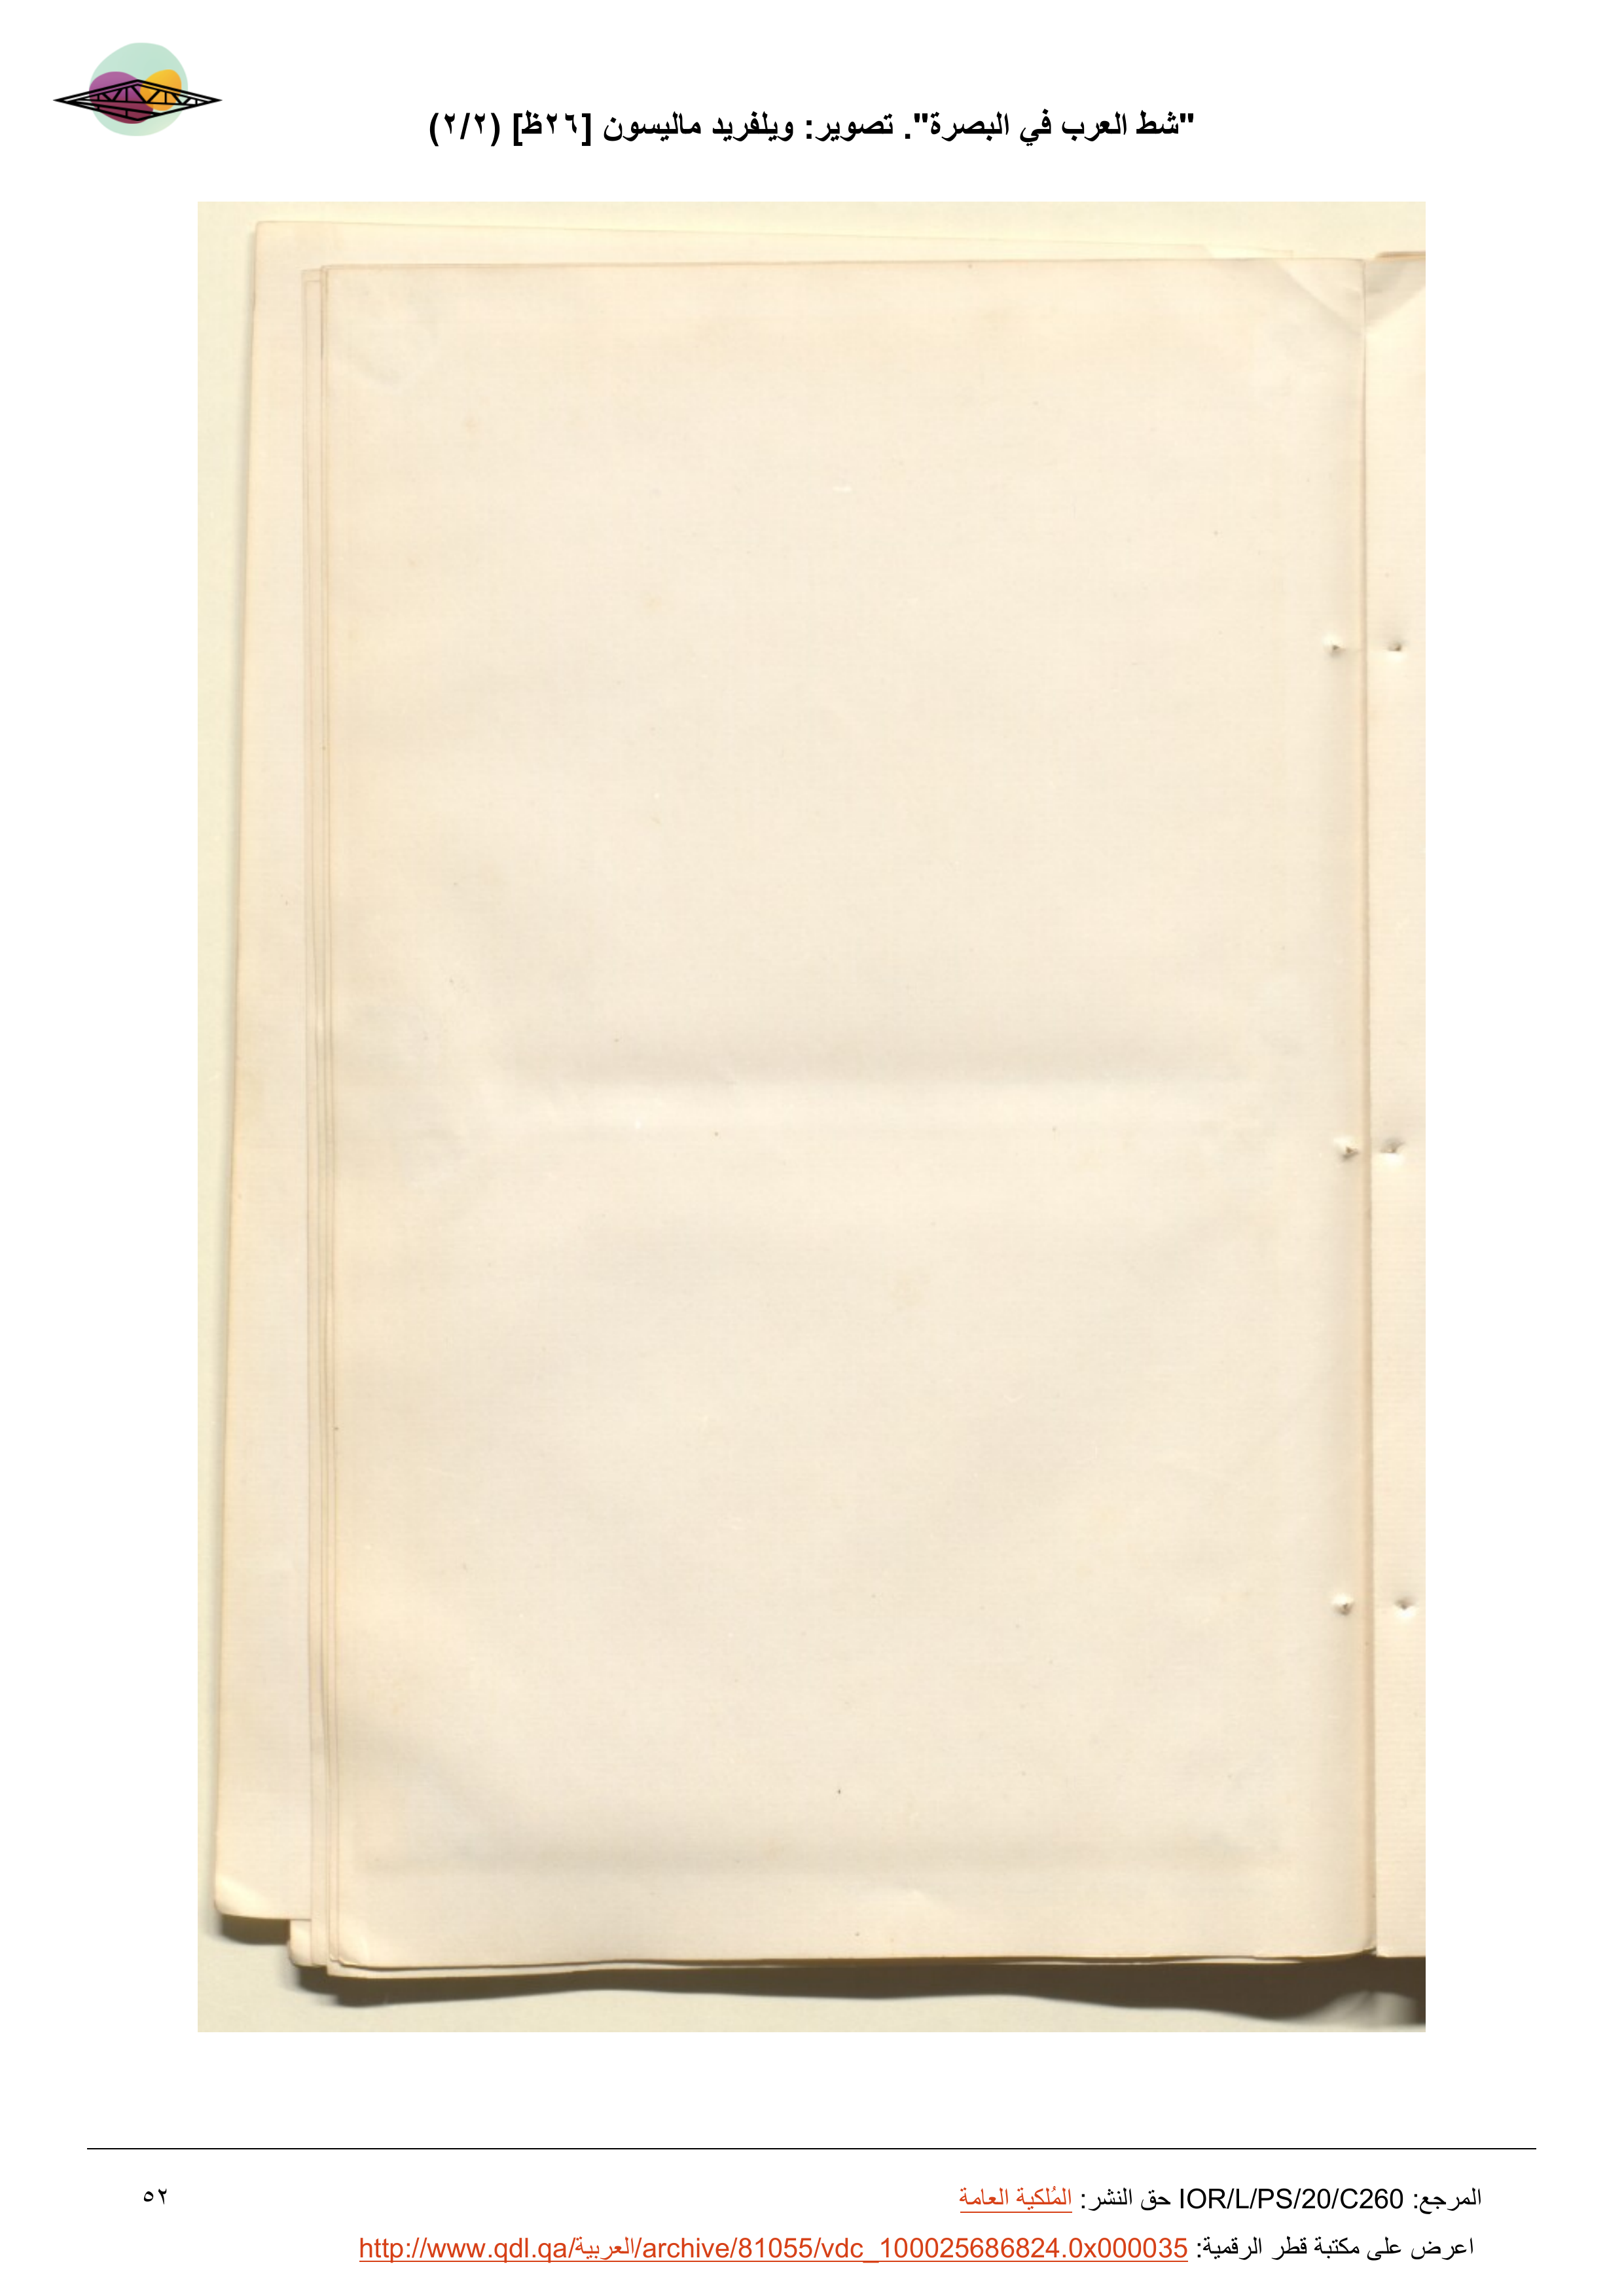 "شط العرب في البصرة". تصوير: ويلفريد ماليسون [٢٦ظ] (٢/٢)
المرجع: IOR/L/PS/20/C260 حق النشر: المُلكية العامة
٥٢
اعرض على مكتبة قطر الرقمية: http://www.qdl.qa/العربية/archive/81055/vdc_100025686824.0x000035